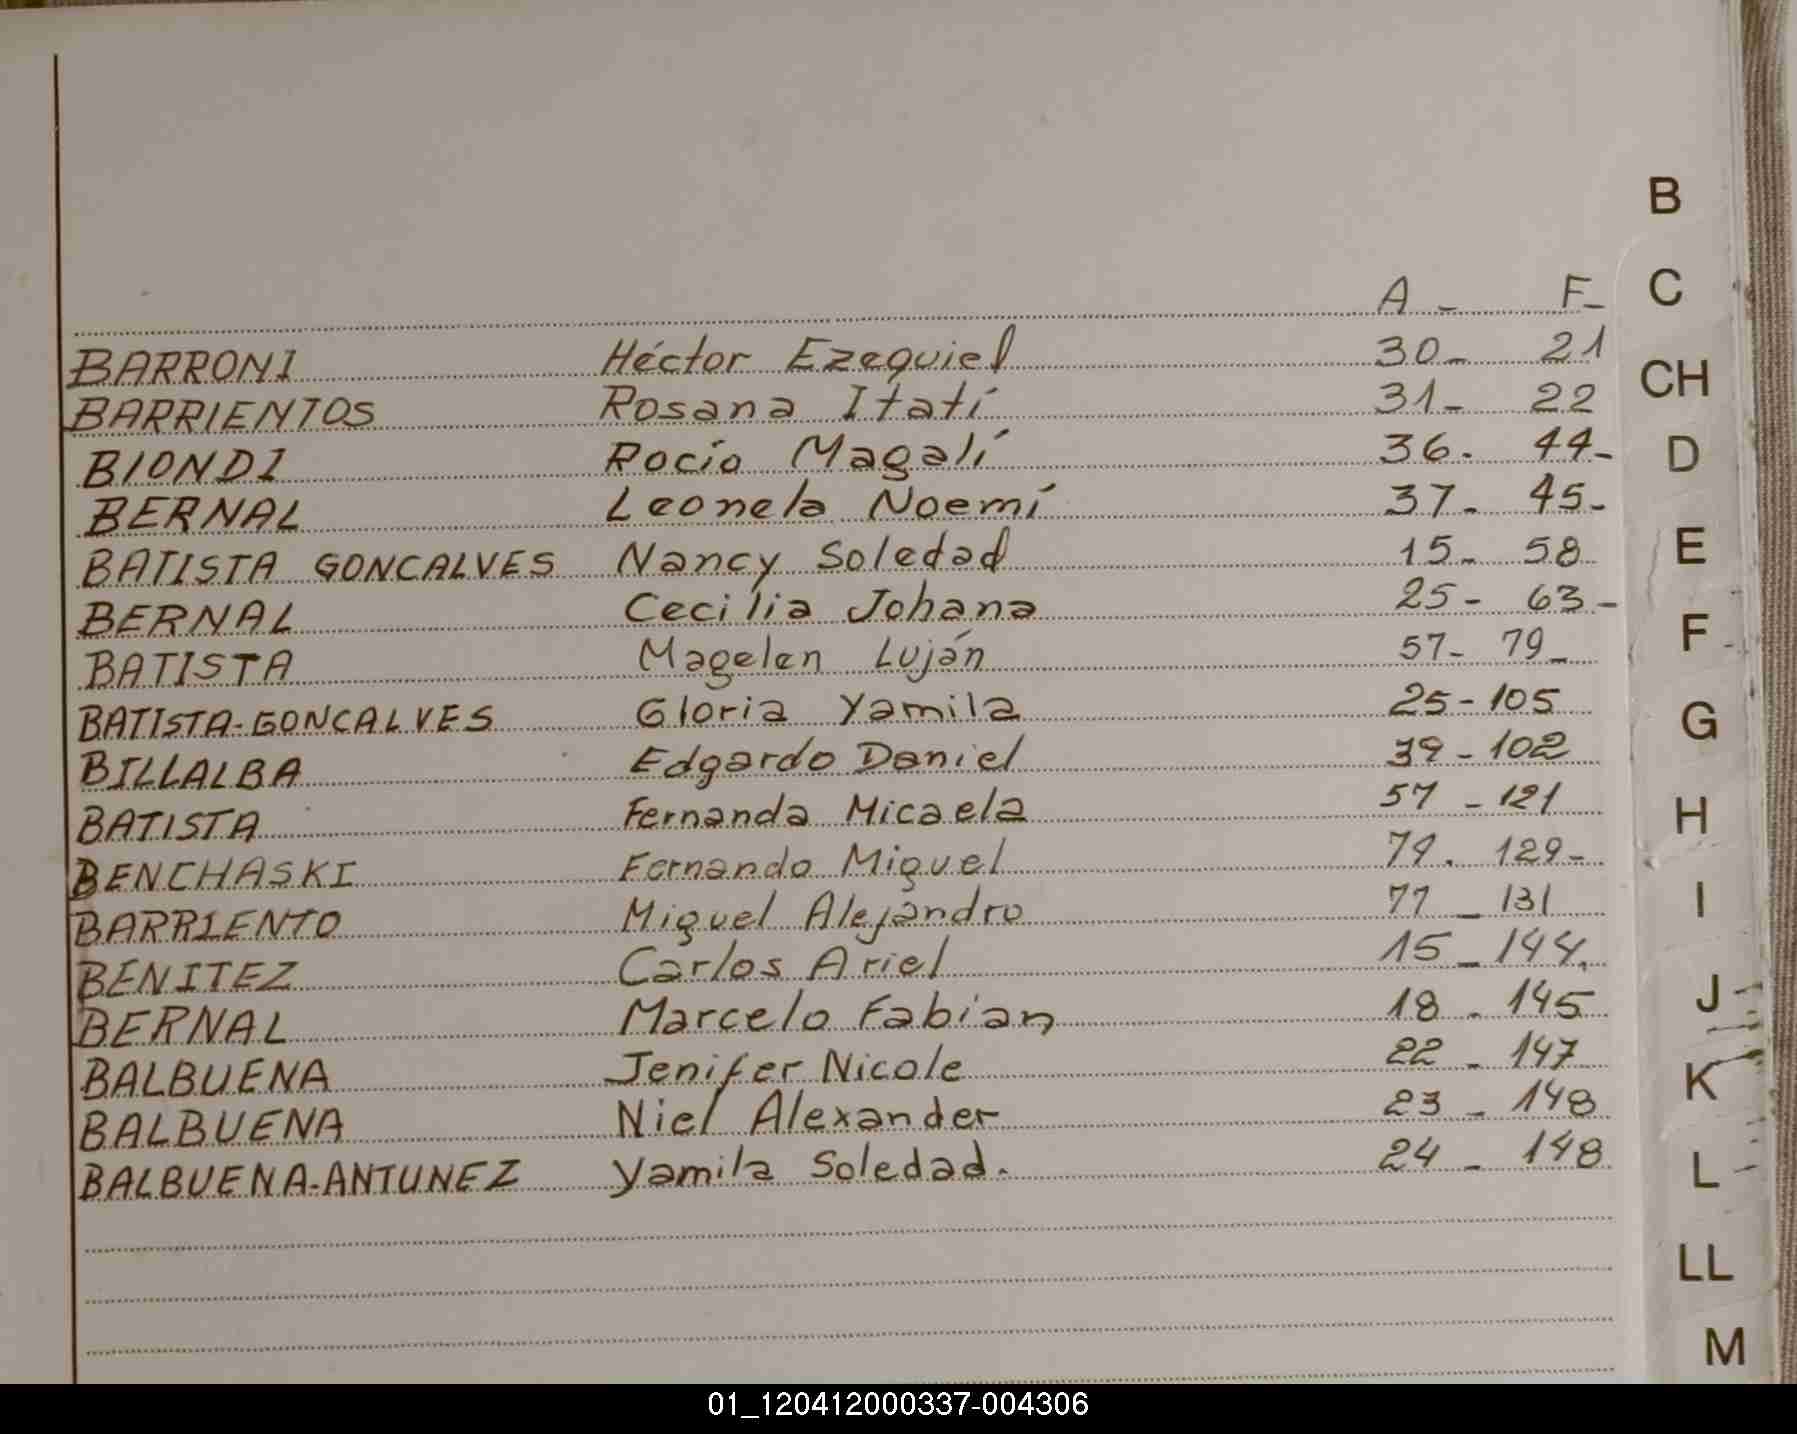 A - F-
BARRONI Héctor Ezequiel 30- 21
BARRIENTOS Rosana Itatí 31- 22
BIONDI Rocío Magalí 36. 44-
BERNAL Leonela Noemí 37- 45-
BATISTA GONCALVES Nancy Soledad 15- 58
BERNAL Cecilia Johana 25- 63-
BATISTA Magelen Luján 57- 79-
BATISTA-GONCALVES Gloria Yamila 25-105
BILLALBA Edgardo Daniel 39-102
BATISTA Fernanda Micaela 57-121
BENCHASKI Fernando Miguel 79. 129-
BARRIENTO Miguel Alejandro 77-131
BENITEZ Carlos Ariel 15-144.
BERNAL Marcelo Fabian 18-145
BALBUENA Jenifer Nicole 22-147
BALBUENA Niel Alexander 23-148
BALBUENA-ANTUNEZ Yamila Soledad. 24-148
B
C
CH
D
E
F
G
H
I
J
K
L
LL
M
01_120412000337-004306